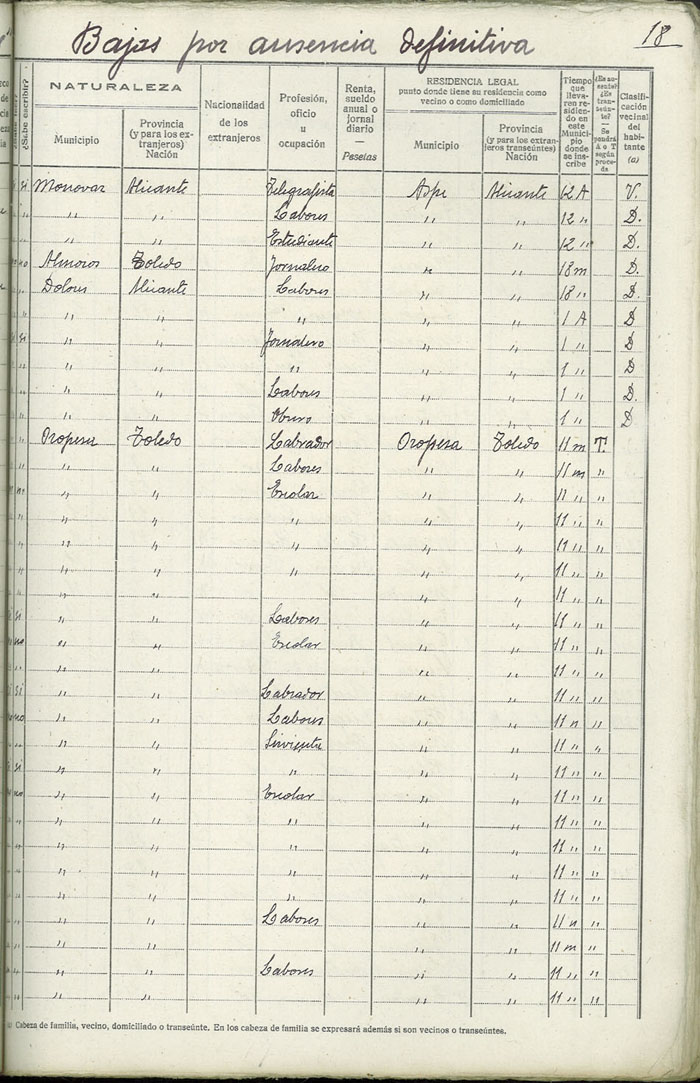 Bajas por ausencia definitiva
18
¿Sabe escribir?
NATURALEZA
Municipio
Provincia (y para los extranjeros) Nación
Nacionalidad de los extranjeros
Profesión, oficio u ocupación
Renta, sueldo anual o jornal diario — Pesetas
RESIDENCIA LEGAL
punto donde tiene su residencia como vecino o como domiciliado
Municipio
Provincia (y para los extranjeros transeúntes) Nación
Tiempo que lleva residiendo en este Municipio donde se inscribe
¿Es ausente? ¿Es transeúnte? — Se pondrá A o T según proceda
Clasificación vecinal del habitante (a)
si Monovar Alicante Telegrafista Aspe Alicante 12 A V.
" " " Labores " " 12 " D.
" " Estudiante " " 12 " D.
no Almorox Toledo Jornalero " " 18 m D.
" Dolores Alicante Labores " " 18 " D.
" " " " " " 1 A D
si " " Jornalero " " 1 " D
" " " " " " 1 " D
" " " Labores " " 1 " D.
" " " Obrero " " 1 " D
" Oropesa Toledo Labrador Oropesa Toledo 11 m T.
" " " Labores " " 11 m "
" " Escolar " " 11 " "
" " " " " " 11 " "
" " " " " " 11 " "
" " " " " " 11 " "
" " " " " 11 " "
si " " Labores " " 11 " "
no " " Escolar " " 11 " "
" " " " " 11 " "
si " " Labrador " " 11 " "
no " " Labores " " 11 " "
" " " Sirvienta " " 11 " "
si " " " " " 11 " "
" " Escolar " " 11 " "
" " " " " " 11 " "
" " " " " " 11 " "
" " " " " " 11 " "
" " " " " " 11 " "
" " " Labores " " 11 " "
" " " " " 11 m "
" " " Labores " " 11 " "
" " " " " 11 " "
(a) Cabeza de familia, vecino, domiciliado o transeúnte. En los cabeza de familia se expresará además si son vecinos o transeúntes.